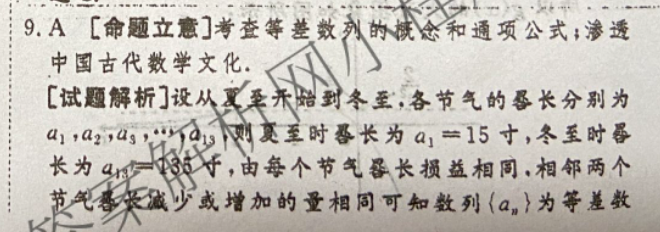 9. A [命题立意]考查等差数列的概念和通项公式;渗透
中国古代数学文化.
[试题解析]设从夏至开始到冬至,各节气的晷长分别为
a₁,a₂,a₃,…,a₁₃,则夏至时晷长为 a₁=15 寸,冬至时晷
长为 a₁₃=135 寸,由每个节气晷长损益相同,相邻两个
节气晷长减少或增加的量相同可知数列{aₙ}为等差数
答案解析网小程